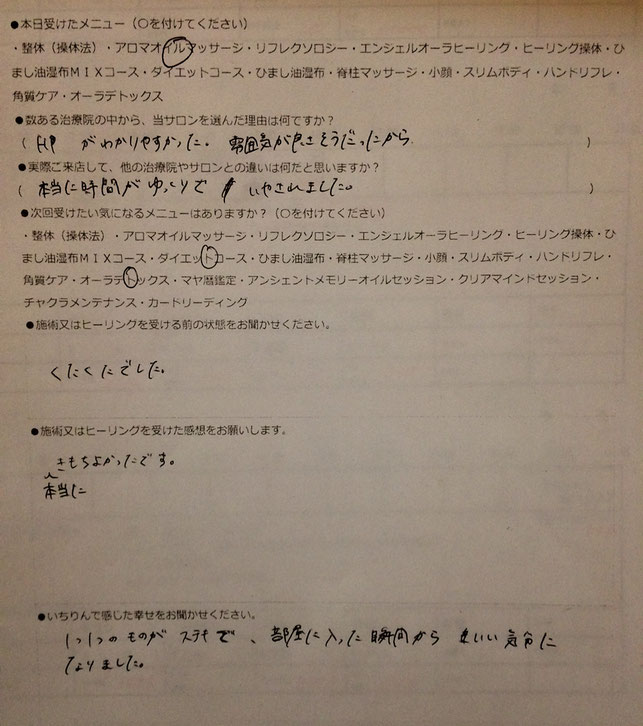 ●本日受けたメニュー（○を付けてください）
・整体（操体法）・アロマオイルマッサージ・リフレクソロジー・エンジェルオーラヒーリング・ヒーリング操体・ひ
まし油湿布ＭＩＸコース・ダイエットコース・ひまし油湿布・脊柱マッサージ・小顔・スリムボディ・ハンドリフレ・
角質ケア・オーラデトックス
●数ある治療院の中から、当サロンを選んだ理由は何てすか？
（ HP がわかりやすかった。 雰囲気が良さそうだったから ）
●実際ご来店して、他の治療院やサロンとの違いは何だと思いますか？
（ 本当に時間がゆっくりで いやされました。 ）
●次回受けたい気になるメニューはありますか？（○を付けてください）
・整体（操体法）・アロマオイルマッサージ・リフレクソロジー・エンジェルオーラヒーリング・ヒーリング操体・ひ
まし油湿布ＭＩＸコース・ダイエットコース・ひまし油湿布・脊柱マッサージ・小顔・スリムボディ・ハンドリフレ・
角質ケア・オーラデトックス・マヤ暦鑑定・アンシェントメモリーオイルセッション・クリアマインドセッション・
チャクラメンテナンス・カードリーディング
●施術又はヒーリングを受ける前の状態をお聞かせください。
くたくたでした。
●施術又はヒーリングを受けた感想をお願いします。
きもちよかったです。
本当に
●いちりんで感じた幸せをお聞かせください。
1つ1つのものが ステキで、部屋に入った瞬間から いい気分に
なりました。